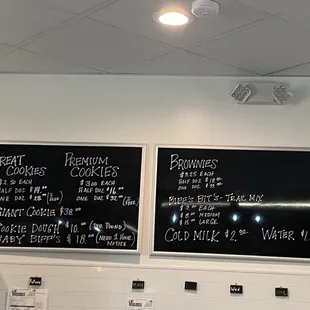 REAT COOKIES
$2.50 EACH
HALF DOZ $14.00
ONE DOZ $28.00 (1 HOUR)
GIANT COOKIE $38.00
COOKIE DOUGH $10.00 (PER POUND)
BABY BIFF'S $18.00 (NEED 1 HOUR NOTICE)
PREMIUM COOKIES
$3.00 EACH
HALF DOZ $16.00
ONE DOZ $32.00 (1 HOUR)
BROWNIES
$3.25 EACH
HALF DOZ $18.00
ONE DOZ $35.00
BIFF'S BIT'S - TRAIL MIX
EACH
MEDIUM
LARGE
COLD MILK $2.
WATER $1.